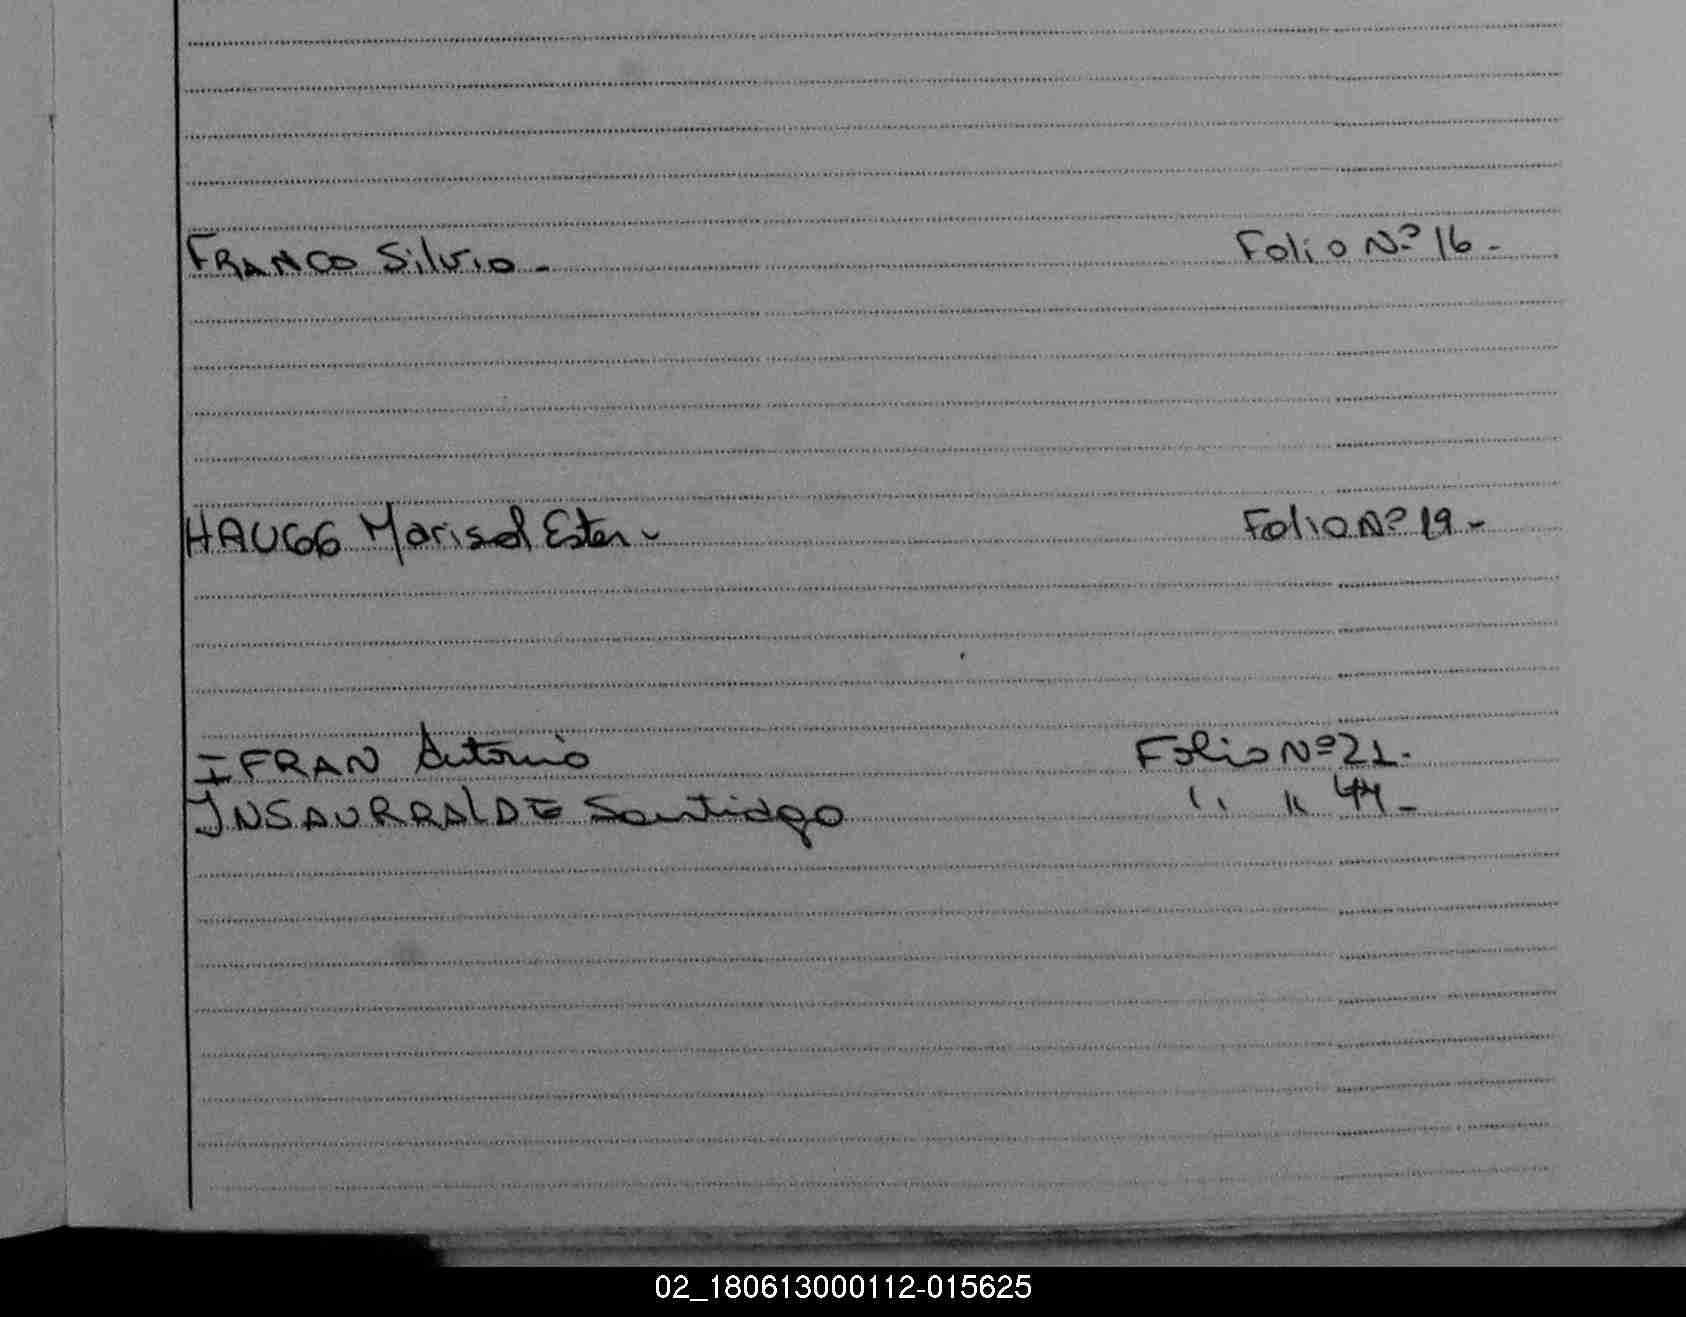 FRANCO Silvio - Folio Nº 16 -
HAUGG Marisol Ester - Folio Nº 19 -
IFRAN Antonio Folio Nº 21.
INSAURRALDE Santiago " " 44 -
02_180613000112-015625